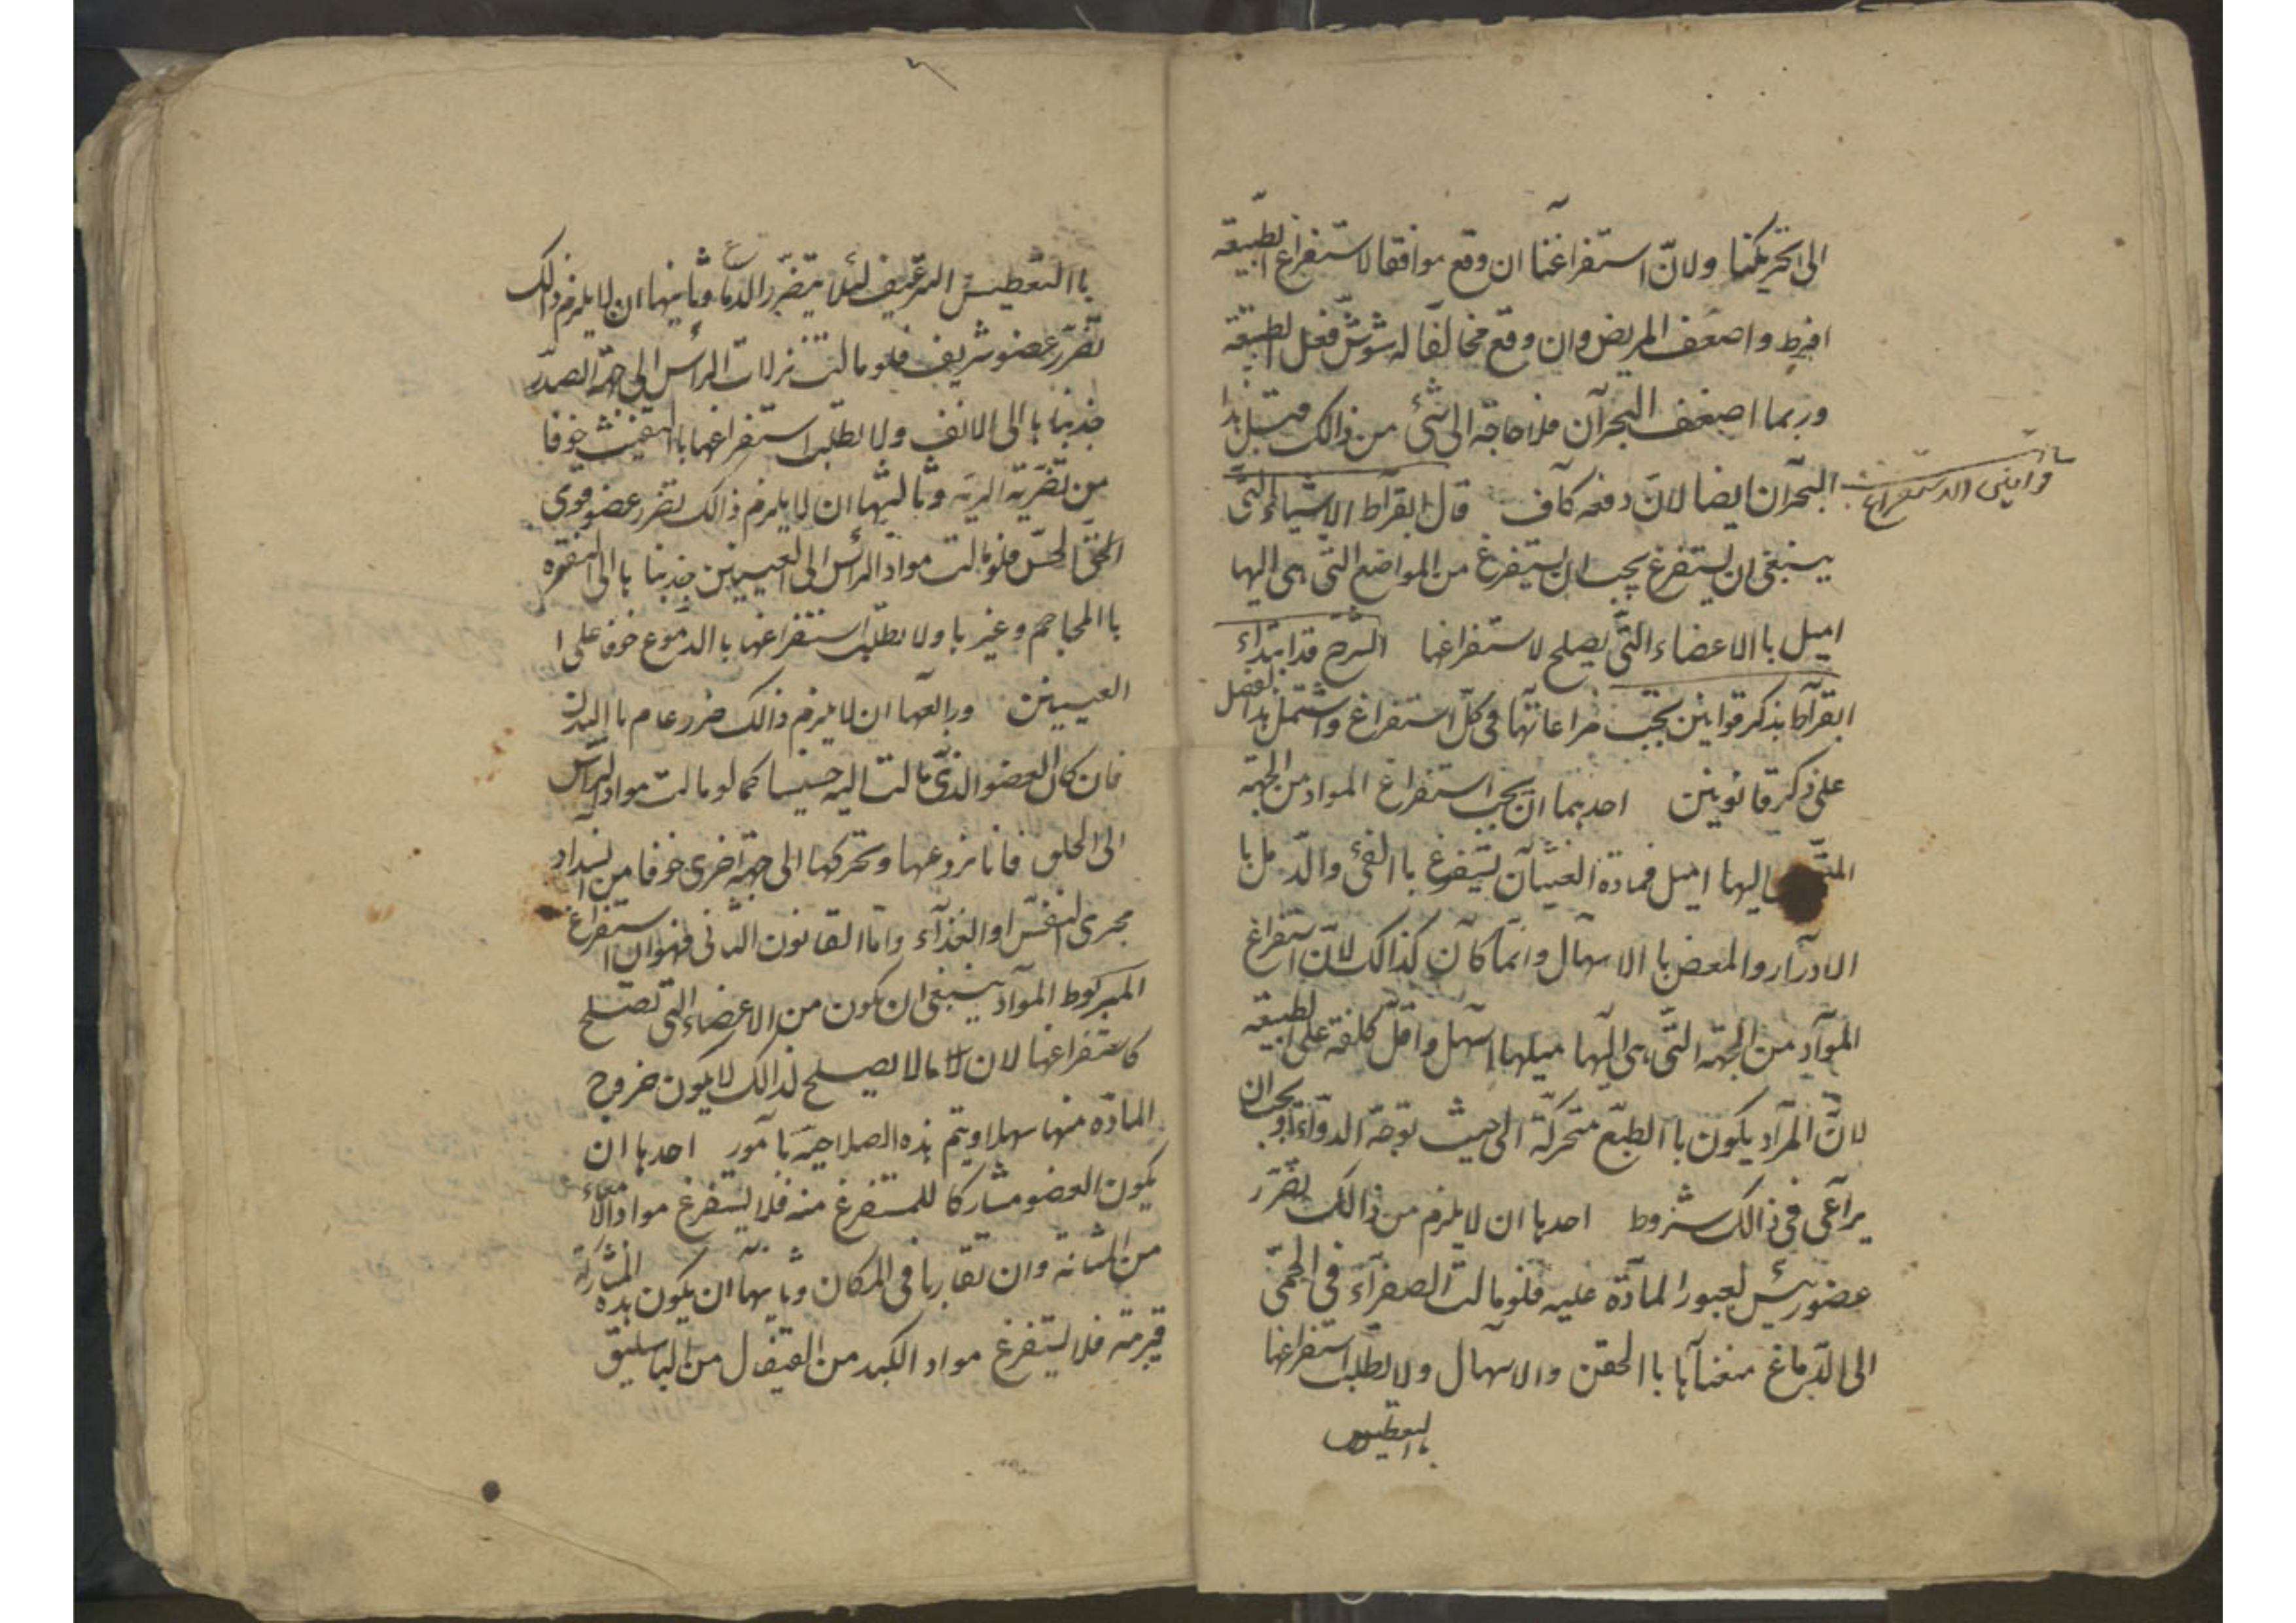 الى تحريكنا ولانّ استفراغنا ان وقع موافقا لاستفراغ الطبيعة
افرط واضعف المريض وان وقع مخالفا له شوش فعل الطبيعة
وربما اضعف البحرآن فلا حاجة الى شئ من ذالك قبل هذا
البحرآن ايضا لانّ دفعه كآف قال ابقرآط الاشياء التى
قوانين الاستفراغ
ينبغى ان يستفرغ يجب ان يستفرغ من المواضع التى هى اليها
اميل باالاعضاء التّى يصلح لاستفراغها الشرح قد ابتداء
ابقرآط بذكر قوانين يجب مراعاتها فى كلّ استفراغ واشتمل هذا الفصل
على ذكر قانونين احدهما ان يجب استفراغ المواد من الجهة
اليها اميل فمادة الغثيآن يستفرغ باالقئ والد مل با
الادرآر والمعض با الاسهآل وانما كآن كذالك لانّ استفراغ
الموآد من الجهة التّى هى اليها ميلها اسهل واقلّ كلفة على الطبيعة
لانّ المرآد يكون باالطبع متحركة الى حيث توجه الدوآء او يجب ان
يرآعى فى ذالك شروط احدها ان لا يلزم من ذالك تضرر
عضو رئيس لعبور المآدة عليه فلو مالت الصفرآء فى الحمّى
الى الدّماغ منعنآها باالحقن والاسهآل ولا يطلب استفراغها
بالتعطيس
باالتعطيس الترعيف لئلا يتضرر الدماغ وثانيها ان لا يلزم ذالك
تضرر عضو شريف فلو مالت نزلات الرأس الى جهة الصدر
جذبنا ها الى الانف ولا يطلب استفراغها باالتنفيث خوفا
من تضرية الرية وثالثها ان لا يلزم ذالك تضرر عضو قوى
الحسّ فلو مالت مواد الرأس الى العينين جذبنا ها الى النقره
باالمحاجم وغيرها ولا يطلب استفراغها باالدموع خوفا على ا
العينين ورابعها ان لا يلزم ذالك ضرر عام باالبدن
فان كان العضو الذّى مالت اليه خسيسا كما لو مالت مواد الرأس
الى الحلق فانا نردعها ونحركها الى جهة اخرى خوفا من انسداد
مجرى النفس او الغذآء وامّا القانون الثانى فهو ان استفراغ
الموآد ينبغى ان يكون من الاعضاء التى تصلح
كاستفراغها لان مالا يصلح لذالك لا يكون خروج
المادّة منها سهلا ويتم هذه الصلاحية بآمور احدها ان
يكون العضو مشاركا للمستفرغ منه فلا يستفرغ مواد
من المثانة وان تقاربا فى المكان وثانيها ان يكون هذه المشاركة
قريبة فلا يستفرغ مواد الكبد من القيفال من الباسليق